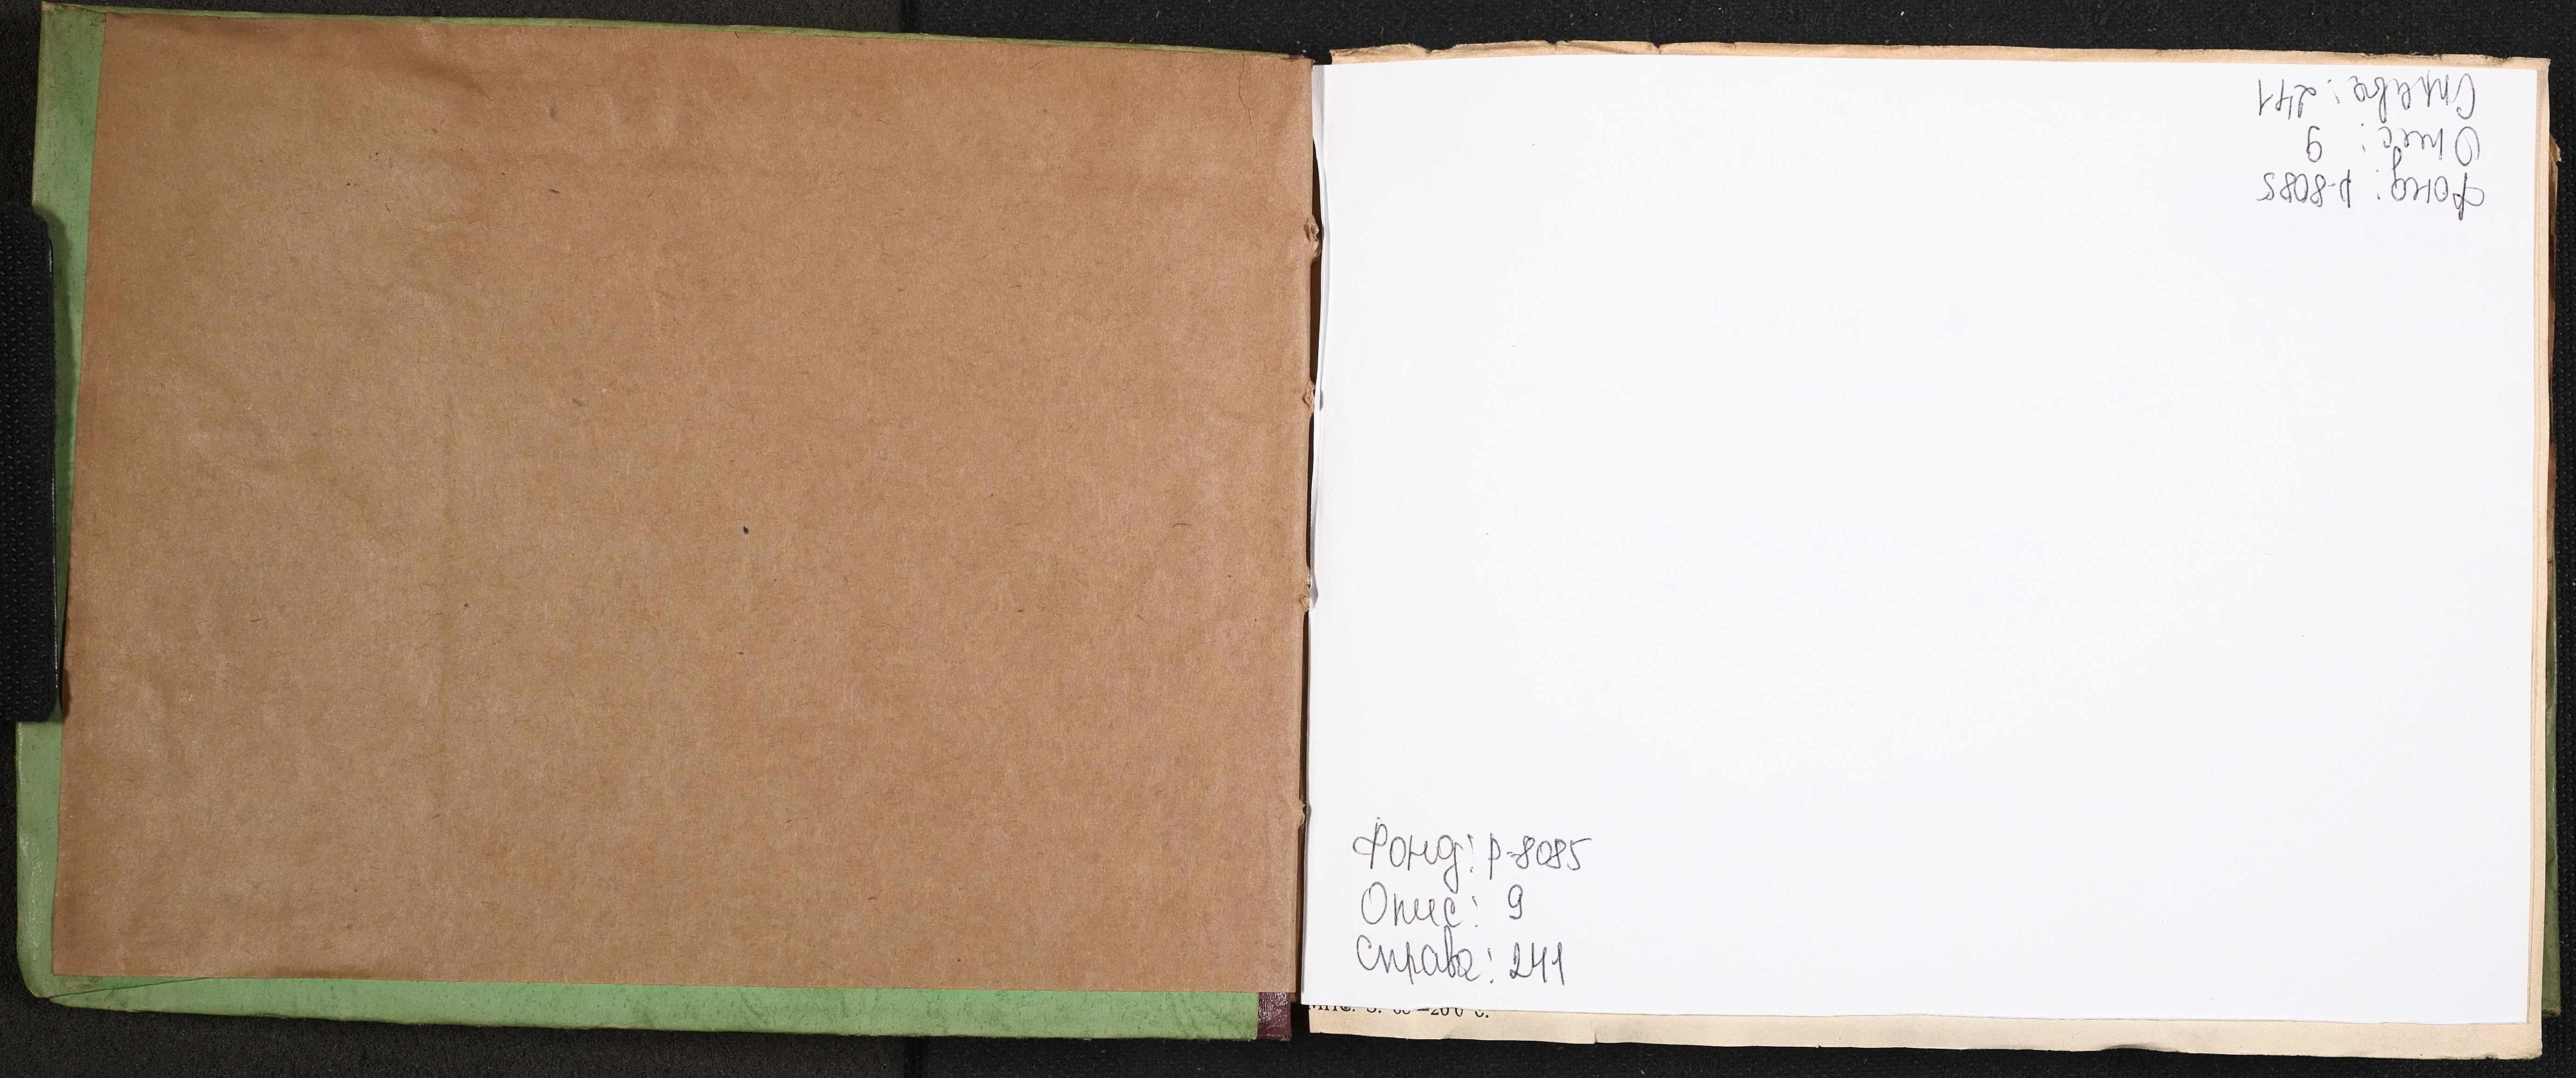 Справа: 241
Опис: 9
Фонд: р-8085
Фонд: р-8085
Опис: 9
Справа: 241